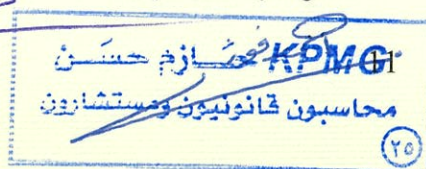 KPMG حازم حسن
محاسبون قانونيون ومستشارون
٢٥